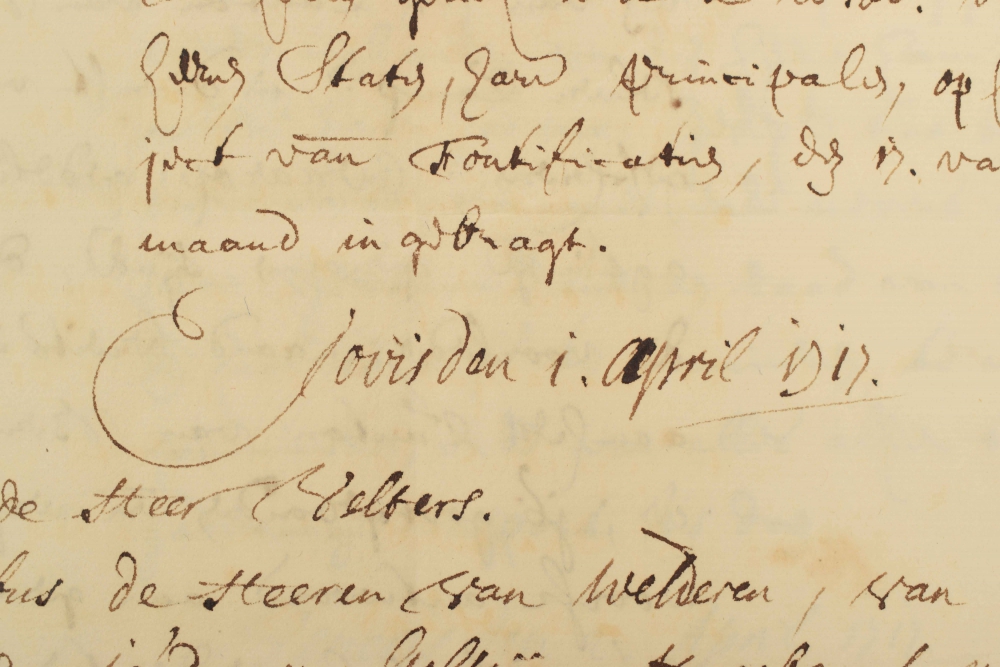 heeren Staten, haare principalen, op
ject van Fortificatien, den 17. va
maand in gebragt.
Jovis den 1. April 1717.
de Heer Velters.
tus de Heeren van Welderen, van